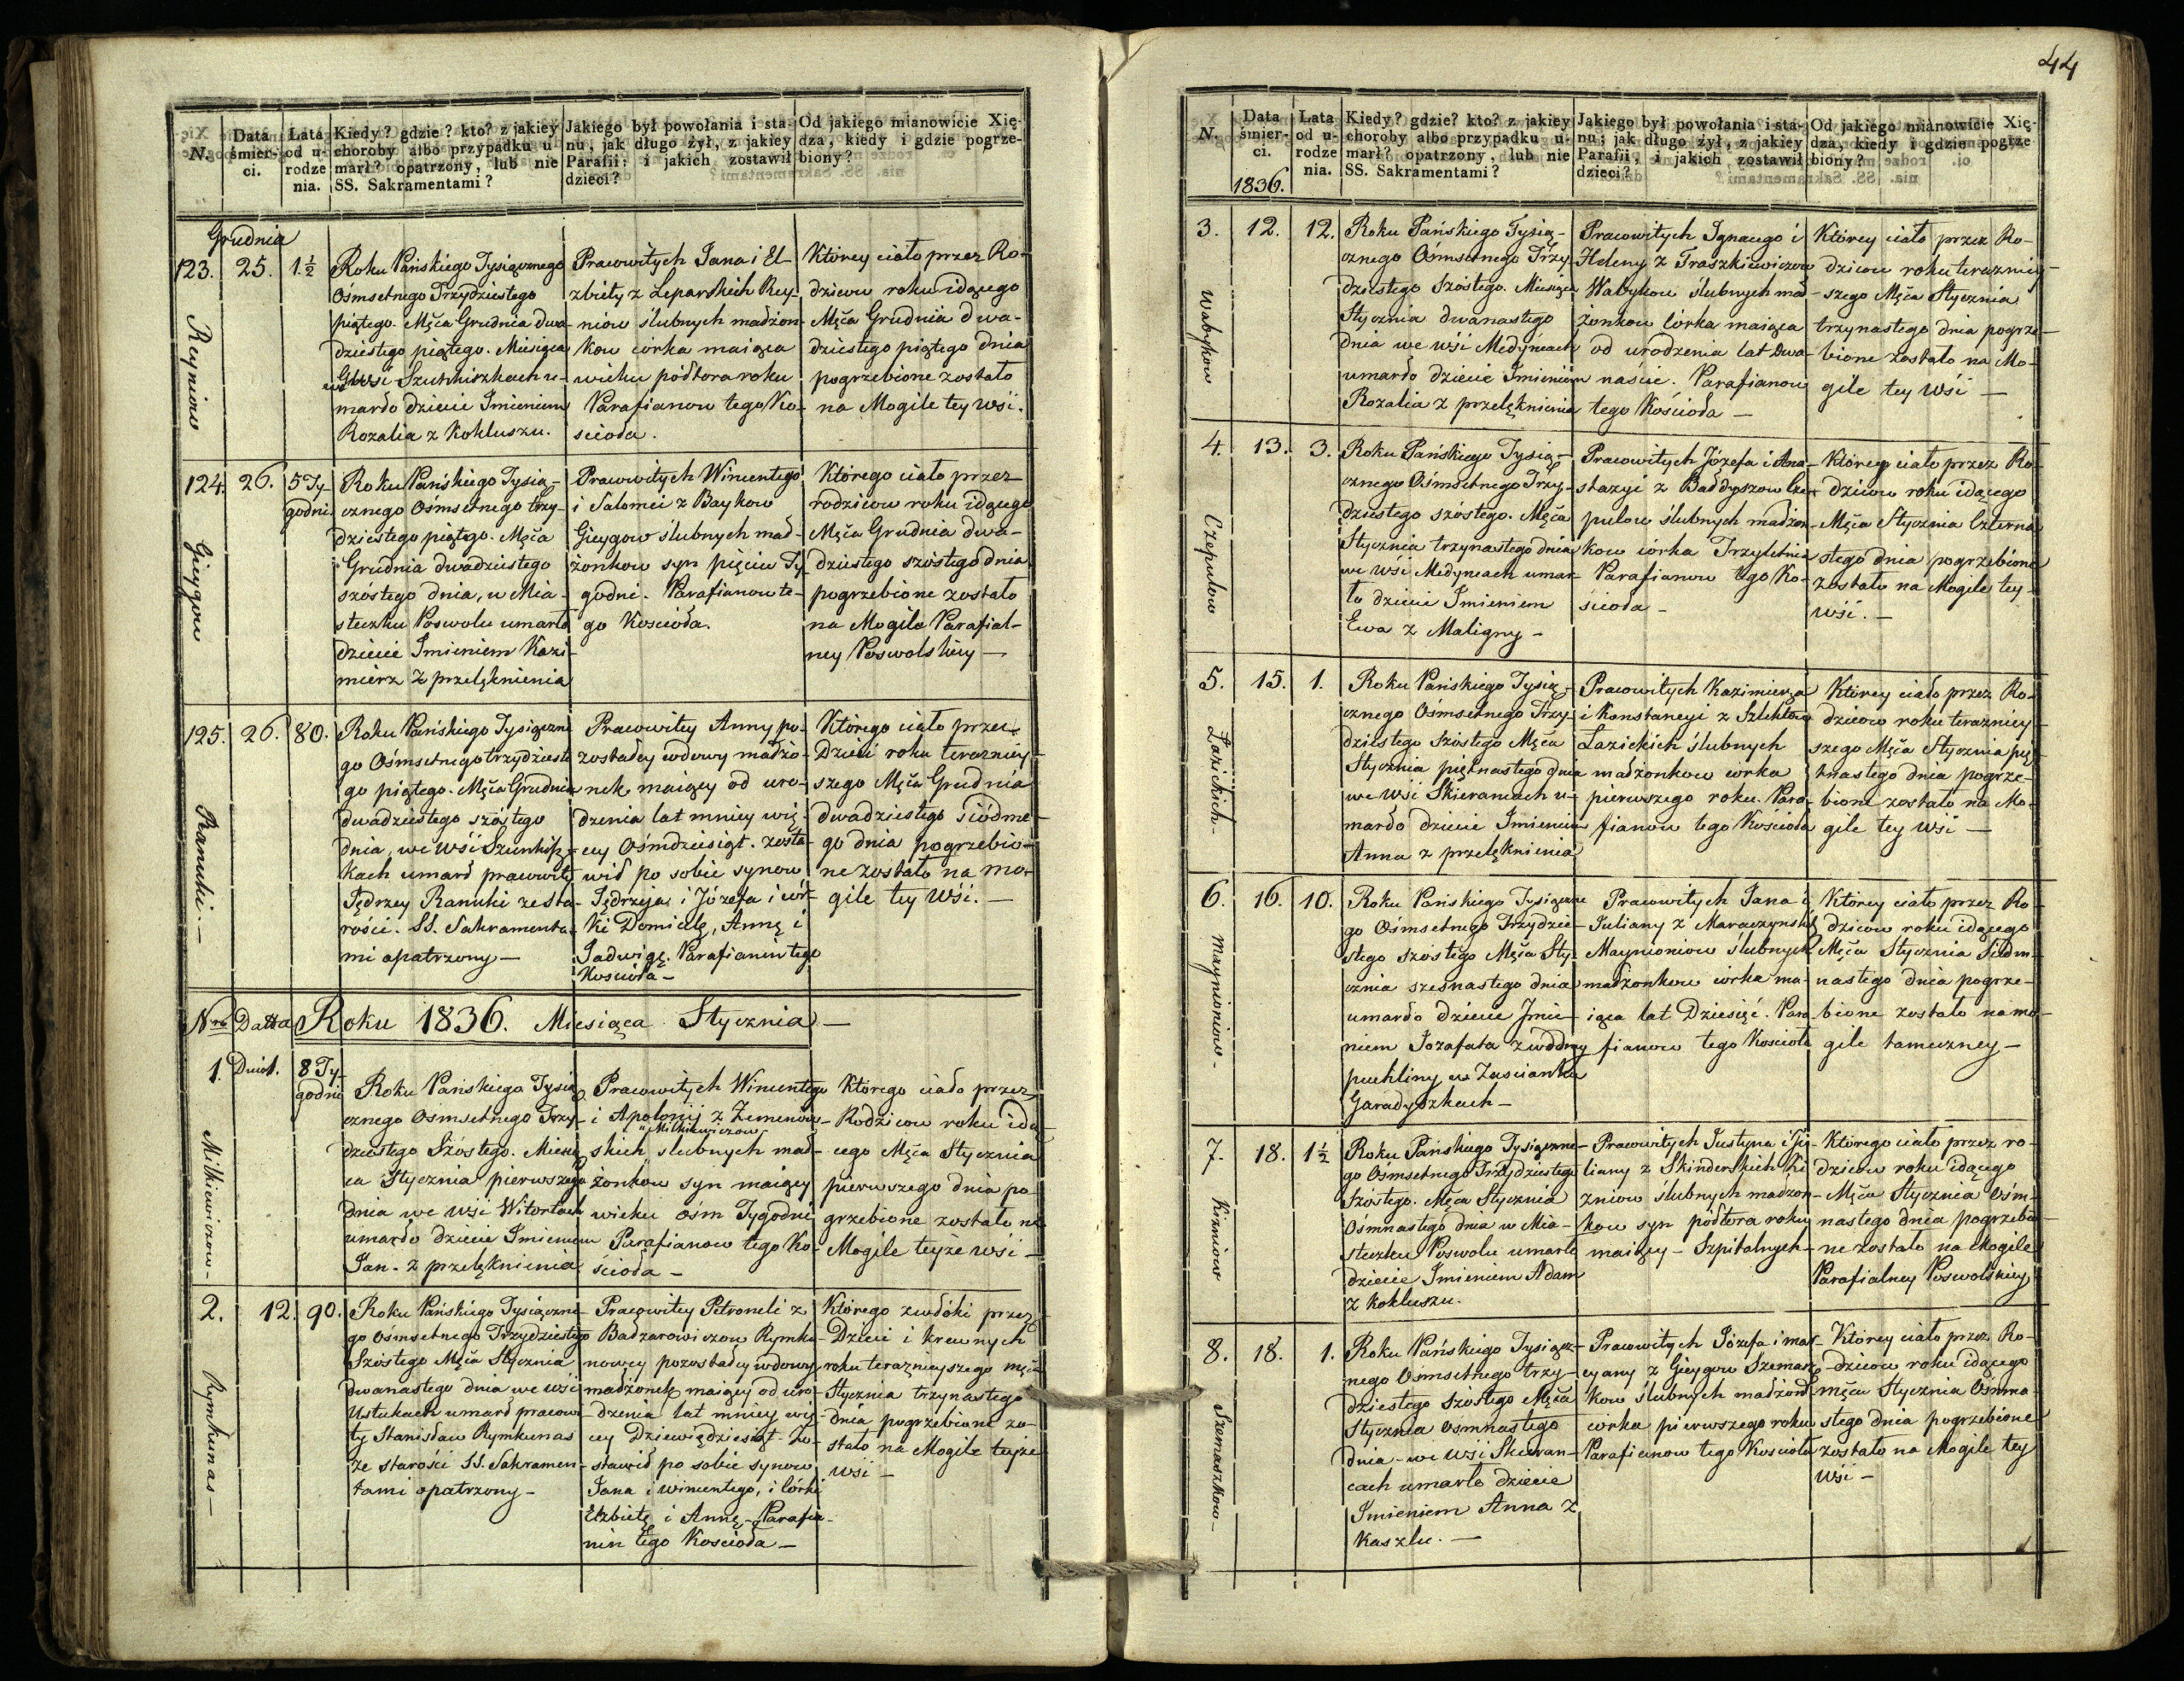 44
N.
Data śmier-
ci.
Lata
od u-
rodze
nia.
Kiedy? gdzie? kto? z jakiey
choroby albo przypadku u-
marł? opatrzony, lub nie
SS. Sakramentami?
Jakiego był powołania i sta-
nu, jak długo żył, z jakiey
Parafii; i jakich zostawił
dzieci?
Od jakiego mianowicie Xię-
dza, kiedy i gdzie pogrze-
biony?
Grudnia
123.
25.
1 ½
Reyniow
Roku Pańskiego Tysiącznego
Ośmsetnego Trzydziestego
piątego. Mśca Grudnia dwa-
dziestego piątego. Miesiąca
we Wsi Szunkiszkach u-
marło dziecie Imieniem
Rozalia z Kokluszu.
Pracowitych Jana i El-
zbiety z Leparskich Rey-
niow ślubnych małżon-
kow corka maiąca
wieku półtora roku
Parafianow tego Ko-
scioła.
Którey ciało przez Ro-
dzicow roku idącego
Mśca Grudnia dwa-
dziestego piątego dnia
pogrzebione zostało
na Mogile tey Wsi.
124.
26.
5 Ty-
godni
Gieygow
Roku Pańskiego Tysią-
cznego Ośmsetnego trzy-
dziestego piątego. Mśca
Grudnia dwadziestego
szóstego dnia, w Mia-
steczku Poswolu umarło
dziecie Imieniem Kazi-
mierz z przelęknienia
Pracowitych Wincentego
i Salomei z Baykow
Gieygow ślubnych mał-
żonkow syn pięciu Ty-
godni. Parafianow te-
go Kościoła.
Którego ciało przez
rodzicow roku idącego
Mśca Grudnia dwa-
dziestego szóstego dnia
pogrzebione zostało
na Mogile Parafial-
ney Poswolskiey —
125.
26.
80.
Ranuki. —
Roku Pańskiego Tysiączne
go Ośmsetnego trzydzieste
go piątego. Mśca Grudnia
dwadziestego szóstego
dnia, we Wsi Szunkisz-
kach umarł pracowity
Jędrzey Ranuki ze sta-
rości. SS. Sakramenta-
mi opatrzony —
Pracowitey Anny po-
zostałey wdowy małżo-
nek maiący od uro-
dzenia lat mniey wię-
cey Ośmdziesiąt. zosta-
wił po sobie synow
Jędrzeja, i Józefa i cór-
ki Domicelę, Annę i
Jadwigę. Parafianin tego
Kościoła —
Którego ciało przez
Dzieci roku teraźniey-
szego Mśca Grudnia
dwadziestego siódme-
go dnia pogrzebio-
ne zostało na mo-
gile tey Wsi. —
Nro Datta Roku 1836. Miesiąca Stycznia —
1.
Dnia 1.
8 Ty-
godni
Milkiewiczow -
Roku Pańskiego Tysią
cznego Ośmsetnego Trzy-
dziestego Szóstego. Miesią
ca Stycznia pierwszego
dnia we Wsi Witortach
umarło dziecie Imieniem
Jan - z przelęknienia
Pracowitych Wincentego
i Apolonij z Zemenow-
" Milkiewiczow
skich " ślubnych mał-
żonkow syn maiący
wieku ośm Tygodni
Parafianow tego Ko-
scioła —
Którego ciało przez
Rodzicow roku idą-
cego Mśca Stycznia
pierwszego dnia po-
grzebione zostało na
Mogile teyże wsi —
2.
12.
90.
Rymkunas —
Roku Pańskiego Tysiączne-
go Ośmsetnego Trzydziestego
Szóstego Mśca Stycznia
dwanastego dnia we wsi
Ustukach umarł pracowi-
ty Stanisław Rymkunas
ze starości SS. Sakramen-
tami opatrzony —
Pracowitey Petroneli z
Badzarowiczow Rymku-
nowey pozostałey wdowy
małżonek maiący od uro-
dzenia lat mniey wię-
cey Dziewiędziesiąt. Zo-
stawił po sobie synow
Jana i Wincentego, i córki
Elżbietę i Annę - Parafia-
nin tego Kościoła —
Którego zwłóki przez
Dzieci i krewnych
roku teraźnieyszego mśca
Stycznia trzynastego
dnia pogrzebione zo-
stało na Mogile teyże
wsi —
N.
Data
śmier-
ci.
1836.
Lata
od u-
rodze
nia.
Kiedy? gdzie? kto? z jakiey
choroby albo przypadku u-
marł? opatrzony, lub nie
SS. Sakramentami?
Jakiego był powołania i sta-
nu; jak długo żył, z jakiey
Parafii, i jakich zostawił
dzieci?
Od jakiego mianowicie Xię-
dza, kiedy i gdzie pogrze
biony?
3.
12.
12.
Wabykow
Roku Pańskiego Tysią-
cznego Ośmsetnego Trzy-
dziestego Szóstego. Miesiąca
Stycznia dwanastego
dnia we wsi Medyneach
umarło dziecie Imieniem
Rozalia z przelęknienia
Pracowitych Ignacego i
Heleny z Traszkiewiczow
Wabykow ślubnych mał-
żonkow córka maiąca
od urodzenia lat Dwa-
naście. Parafianow
tego Kościoła —
Którey ciało przez Ro-
dzicow roku teraźniey-
szego Mśca Stycznia
trzynastego dnia pogrze-
bione zostało na Mo-
gile tey Wsi —
4.
13.
3.
Czepulow
Roku Pańskiego Tysią-
cznego Ośmsetnego Trzy-
dziestego szóstego. Mśca
Stycznia trzynastego dnia
we wsi Medyneach umar-
ło dziecie Imieniem
Ewa z Maligny —
Pracowitych Józefa i Ana-
stazyi z Bałdyszow Cze-
pulow ślubnych małżon-
kow córka Trzyletnia
Parafianow tego Ko-
ścioła —
Którey ciało przez Ro-
dzicow roku idącego
Mśca Stycznia Czterna
stego dnia pogrzebione
zostało na Mogile tey
wsi. —
5.
15.
1.
Łazickich -
Roku Pańskiego Tysią-
cznego Ośmsetnego Trzy-
dziestego szóstego Mśca
Stycznia piętnastego dnia
we Wsi Skieraniach u-
marło dziecie Imieniem
Anna z przelęknienia
Pracowitych Kazimierza
i Konstancyi z Szlektow
Łazickich ślubnych
małżonkow corka
pierwszego roku. Para-
fianow tego Kościoła
Którey ciało przez Ro-
dzicow roku teraźniey-
szego Mśca Stycznia pię-
tnastego dnia pogrze-
bione zostało na Mo-
gile tey Wsi —
6.
16.
10.
Maynioniow -
Roku Pańskiego Tysiączne
go Ośmsetnego Trzydzie-
stego szóstego Mśca Sty-
cznia szesnastego dnia
umarło dziecie Imie-
niem Jozafata z wodney
puchliny w Zascianku
Garadyszkach —
Pracowitych Jana i
Juliany z Maraczynskich
Maynioniow ślubnych
małżonkow corka ma-
iąca lat Dziesięć. Para
fianow tego Kościoła
Którey ciało przez Ro-
dzicow roku idącego
Mśca Stycznia Siedm-
nastego dnia pogrze-
bione zostało na mo-
gile tameczney —
7.
18.
1 ½
Kizniow
Roku Pańskiego Tysiączne-
go Ośmsetnego Trzydziestego
Szóstego. Mśca Stycznia
Ośmnastego dnia w Mia-
steczku Poswolu umarło
dziecie Imieniem Adam
z kokluszu.
Pracowitych Justyna i Ju-
liany z Skinderskich Ki-
zniow ślubnych małżon-
kow syn półtora roku
maiący - Szpitalnych -
Którego ciało przez ro-
dzicow roku idącego
Mśca Stycznia Ośm-
nastego dnia pogrzebio-
ne zostało na Mogile
Parafialney Poswolskiey
8.
18.
1.
Szemaszkow —
Roku Pańskiego Tysiącz-
nego Ośmsetnego trzy-
dziestego szóstego Mśca
Stycznia Ośmnastego
dnia - we Wsi Skieran-
cach umarło dziecie
Imieniem Anna z
kaszlu. —
Pracowitych Józefa i mar-
cyany z Gieygow Szemasz-
kow ślubnych małżonk
corka pierwszego roku
Parafianow tego Kościoła
Którey ciało przez Ro-
dzicow roku idącego
mśca Stycznia Ośmna-
stego dnia pogrzebione
zostało na Mogile tey
Wsi —